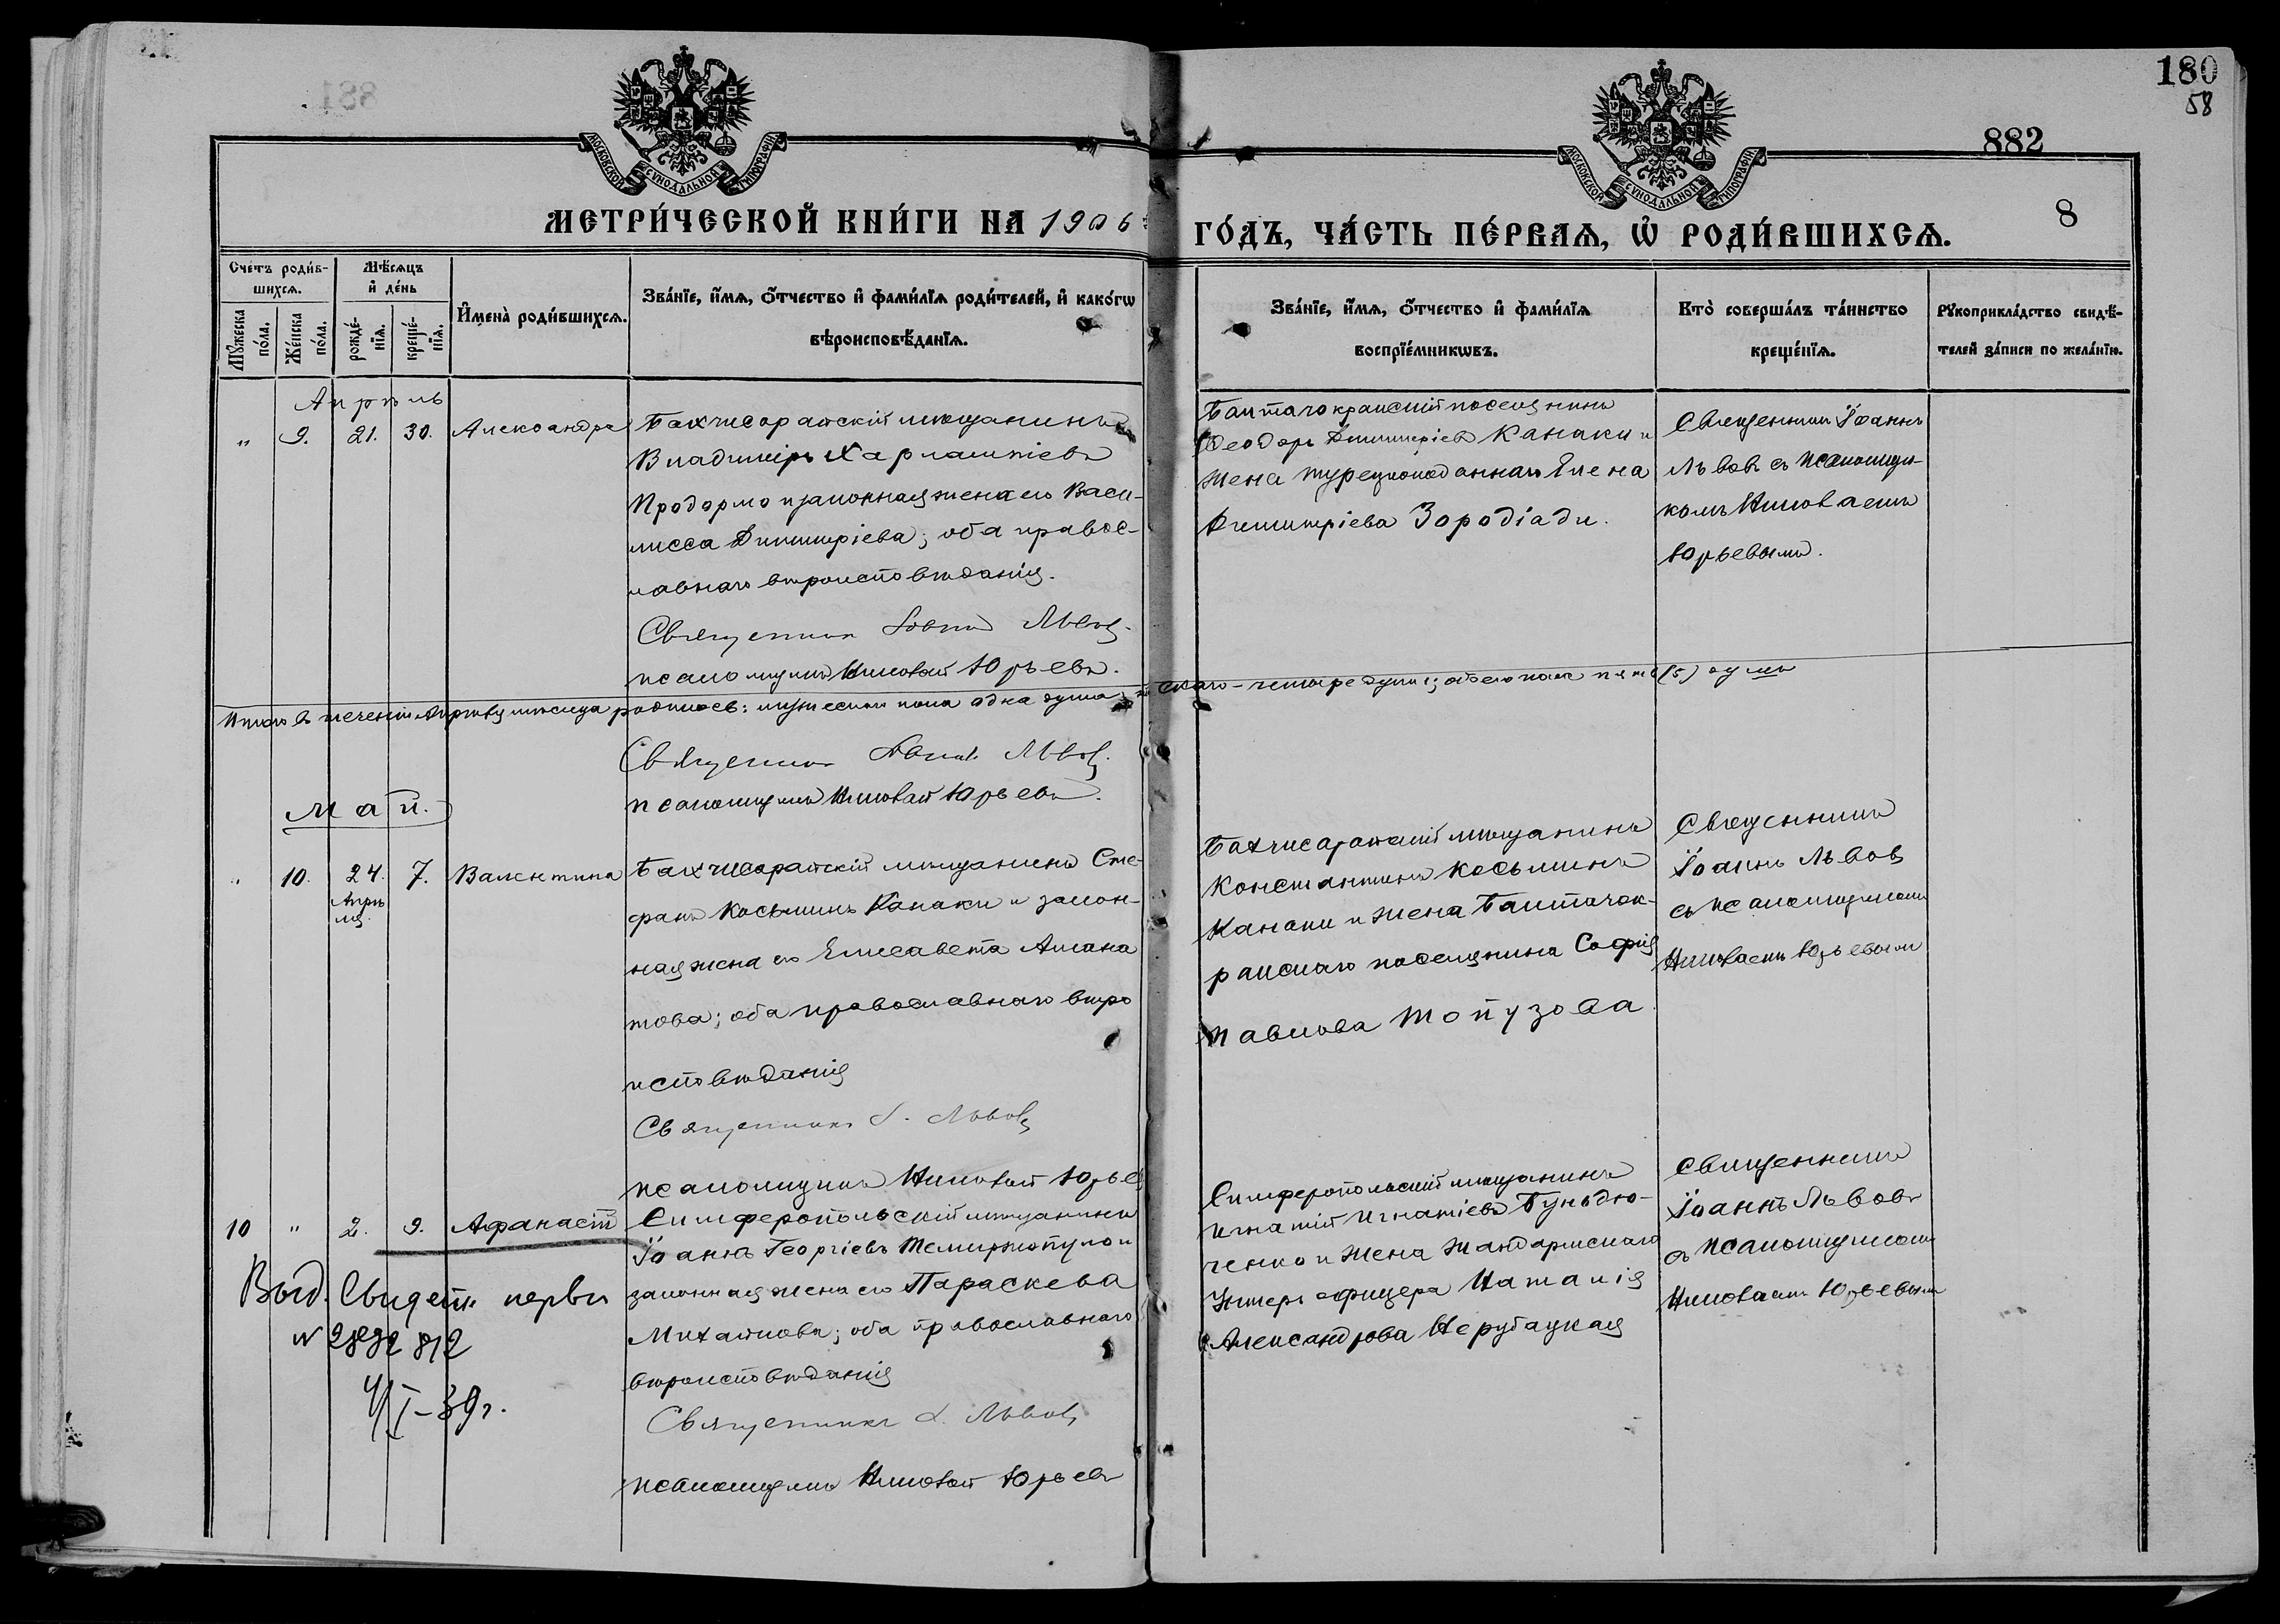 180
58
882
8
МОСКОВСКОЙ СѴНОДАЛЬНОЙ ТИПОГРАФІИ
МОСКОВСКОЙ СѴНОДАЛЬНОЙ ТИПОГРАФІИ
МЕТРИ́ЧЕСКОЙ КНИ́ГИ НА 1906
ГО́ДЪ, ЧА́СТЬ ПЕ́РВАѦ, Ѡ҆ РОДИ́ВШИХСѦ.
Сче́тъ роди́в-
шихсѧ.
Мѣ́сѧцъ
и҆ де́нь
Мꙋ́жеска
по́ла.
Же́нска
по́ла.
рожде́-
нїѧ.
креще́-
нїѧ.
И҆мена̀ роди́вшихсѧ.
Зва́нїе, и҆́мѧ, ѻ҆́тчество и҆ фами́лїѧ роди́телей, и҆ како́гѡ
вѣроисповѣ́данїѧ.
Зва́нїе, и҆́мѧ, ѻ҆́тчество и҆ фами́лїѧ
воспрїе́мникѡвъ.
Кто̀ соверша́лъ та́инство
креще́нїѧ.
Рꙋкоприкла́дство свидѣ́-
телей за́писи по жела́нїю.
Апрѣль
" 9. 21. 30. Александра
Бахчисарайскій мѣщанинъ
Владиміръ Харлампіевъ
Продормо и законная жена его Васи-
лисса Димитріева; оба правос-
лавнаго вѣроисповѣданія.
Священникъ Іоаннъ Львовъ.
псаломщикъ Николай Юрьевъ.
Феодоръ Димитріевъ Канаки и
жена турецкоподаннаго Елена
Димитріева Зородіади.
Священникъ Іоаннъ
Львовъ съ псаломщи-
комъ Николаемъ
Юрьевымъ.
Итого въ теченіи Апрѣля мѣсяца родилось: мужескаго пола одна душа, женскаго - четыре души; обоего пола пять (5) душъ
Священникъ Іоаннъ Львовъ.
псаломщикъ Николай Юрьевъ.
Май.
" 10. 24. 7. Валентина
Апрѣ
ля.
Бахчисарайскій мѣщанинъ Сте-
фанъ Косьминъ Канаки и закон-
ная жена его Елисавета Амана
това; оба православнаго вѣро
исповѣданія
Священникъ І. Львовъ
псаломщикъ Николай Юрьевъ
Бахчисарайскій мѣщанинъ
Константинъ Косьминъ
Канаки и жена
поселянина Софія
Павлова Топузова.
Священникъ
Іоаннъ Львовъ
съ псаломщикомъ
Николаемъ Юрьевымъ
10 " 2. 9. Афанасій
Симферопольскій мѣщанинъ
Іоаннъ Георгіевъ Темиржопуло и
законная жена его Параскева
Михайлова; оба православнаго
вѣроисповѣданія
Священникъ І. Львовъ
псаломщикъ Николай Юрьевъ
Симферопольскій мѣщанинъ
Игнатій Игнатіевъ Гунбдю-
ченко и жена жандармскаго
Унтеръ офицера Наталія
Александрова Нерубацкая
Священникъ
Іоаннъ Львовъ
съ псаломщикомъ
Николаемъ Юрьевымъ
Выд. Свидет.
4/I-39г.